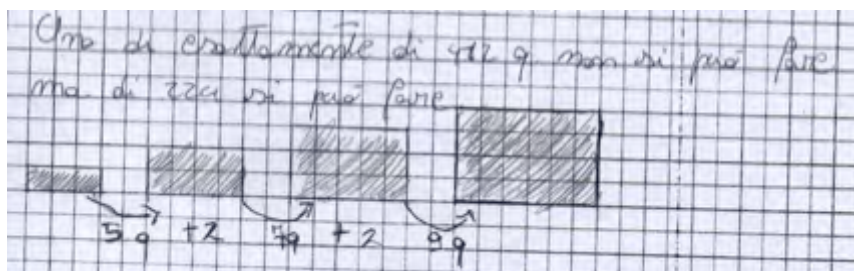 Uno di esattamente di 412 q non si può fare
ma di 224 si può fare
5 q +2 7q +2 9 q